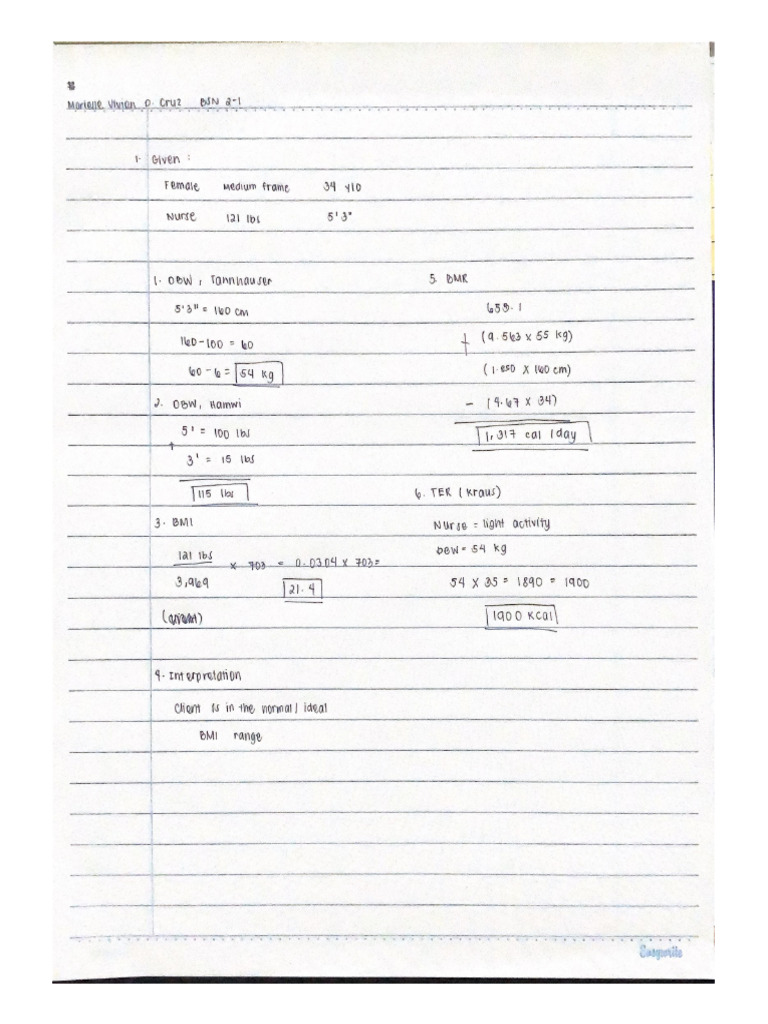 Marlene Vivien O. Cruz BSN 2-1
1. Given :
Female Medium frame 34 y10
Nurse 121 lbs 5'3"
1. DBW, Tannhauser
5'3" = 160 cm
160-100 = 60
60-6 = 54 kg
2. DBW, Hamwi
5' = 100 lbs
+
3' = 15 lbs
115 lbs
3. BMI
121 lbs x 703 = 0.0304 x 703=
3,969 21.4
4. Interpretation
Client is in the normal/ ideal
BMI range
5. BMR
655.1
+ (9.563 x 55 kg)
(1.850 x 160 cm)
- (4.67 x 34)
1,317 cal /day
6. TER (Kraus)
Nurse = light activity
DBW = 54 kg
54 x 35 = 1890 = 1900
1900 Kcal
Easywrite